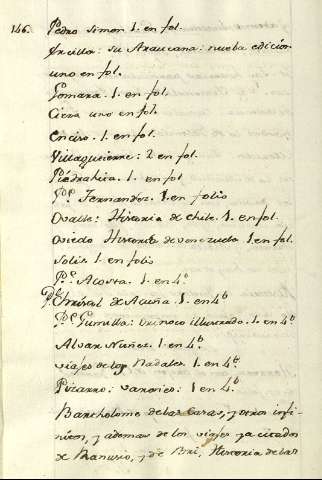 146. Pedro Simon 1. en fol.
Ercilla: su Araucana: nueba edicion
uno en fol.
Gomara. 1. en fol.
Cieza uno en fol.
Enciso. 1. en fol.
Villagutierre: 2 en fol.
Piedrahita. 1. en fol
Pe. Fernandez. 1. en folio
Ovalle: Historia de Chile. 1. en fol.
Oviedo Historia de Venezuela 1. en fol.
Solis. 1. en folio
Pe. Acosta. 1. en 4o
Pe. Cristoval de Acuña. 1. en 4o
Pe. Gumilla: Orinoco illustrado. 1. en 4o
Alvar Nuñez. 1. en 4o
viajes de los Nadales. 1. en 4o
Pizarro: varones: 1 en 4o
Bartholome de las Casas, y otros infi-
nitos, y ademas de los viajes ya citados
de Ranusio, y de Bri, Historia de las